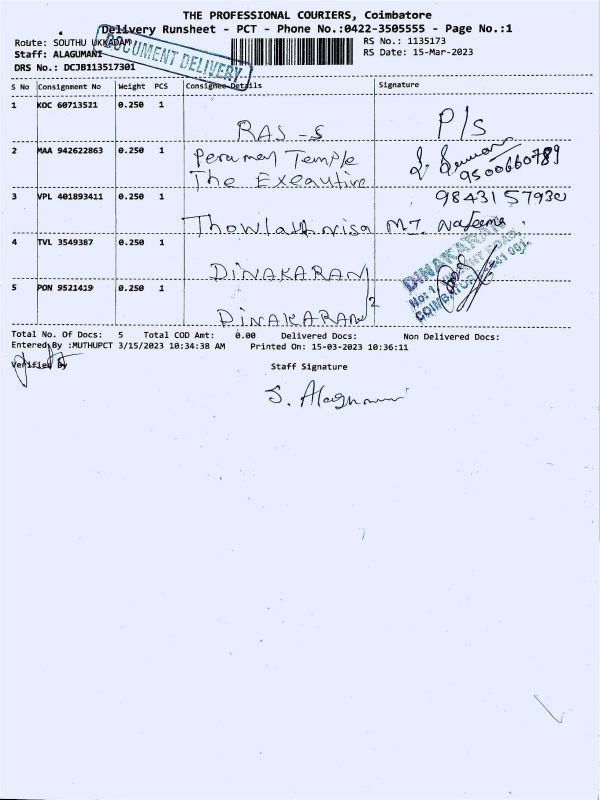 THE PROFESSIONAL COURIERS, Coimbatore
Delivery Runsheet - PCT - Phone No.:0422-3505555 - Page No.:1
Route: SOUTHU UKKADAM
RS No.: 1135173
Staff: ALAGUMANI
RS Date: 15-Mar-2023
DOCUMENT DELIVERY
DRS No.: DCJB113517301
S No Consignment No Weight PCS Consignee Details Signature
1 KOC 60713521 0.250 1
RAS-S P/S
2 MAA 942622863 0.250 1 Perumal Temple
The Executive 9500660789
3 VPL 401893411 0.250 1 9843157930
Thowlathnisa M.I.
4 TVL 3549387 0.250 1
DINAKARAN DINAKARAN
5 PON 9521419 0.250 1
DINAKARAN 2
Total No. Of Docs: 5 Total COD Amt: 0.00 Delivered Docs: Non Delivered Docs:
Entered By :MUTHUPCT 3/15/2023 10:34:38 AM Printed On: 15-03-2023 10:36:11
Verified By Staff Signature
S. Alagumani